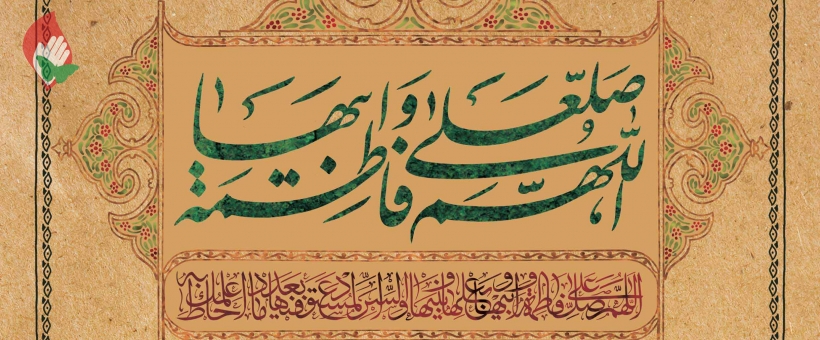 اللّهمّ صَلّ عَلی فاطِمَة وَ ابیها
اللّهمّ صلّ علی فاطمة و ابیها و بعلها و بنیها و السّرّ المستودع فیها بعدد ما احاط به علمک